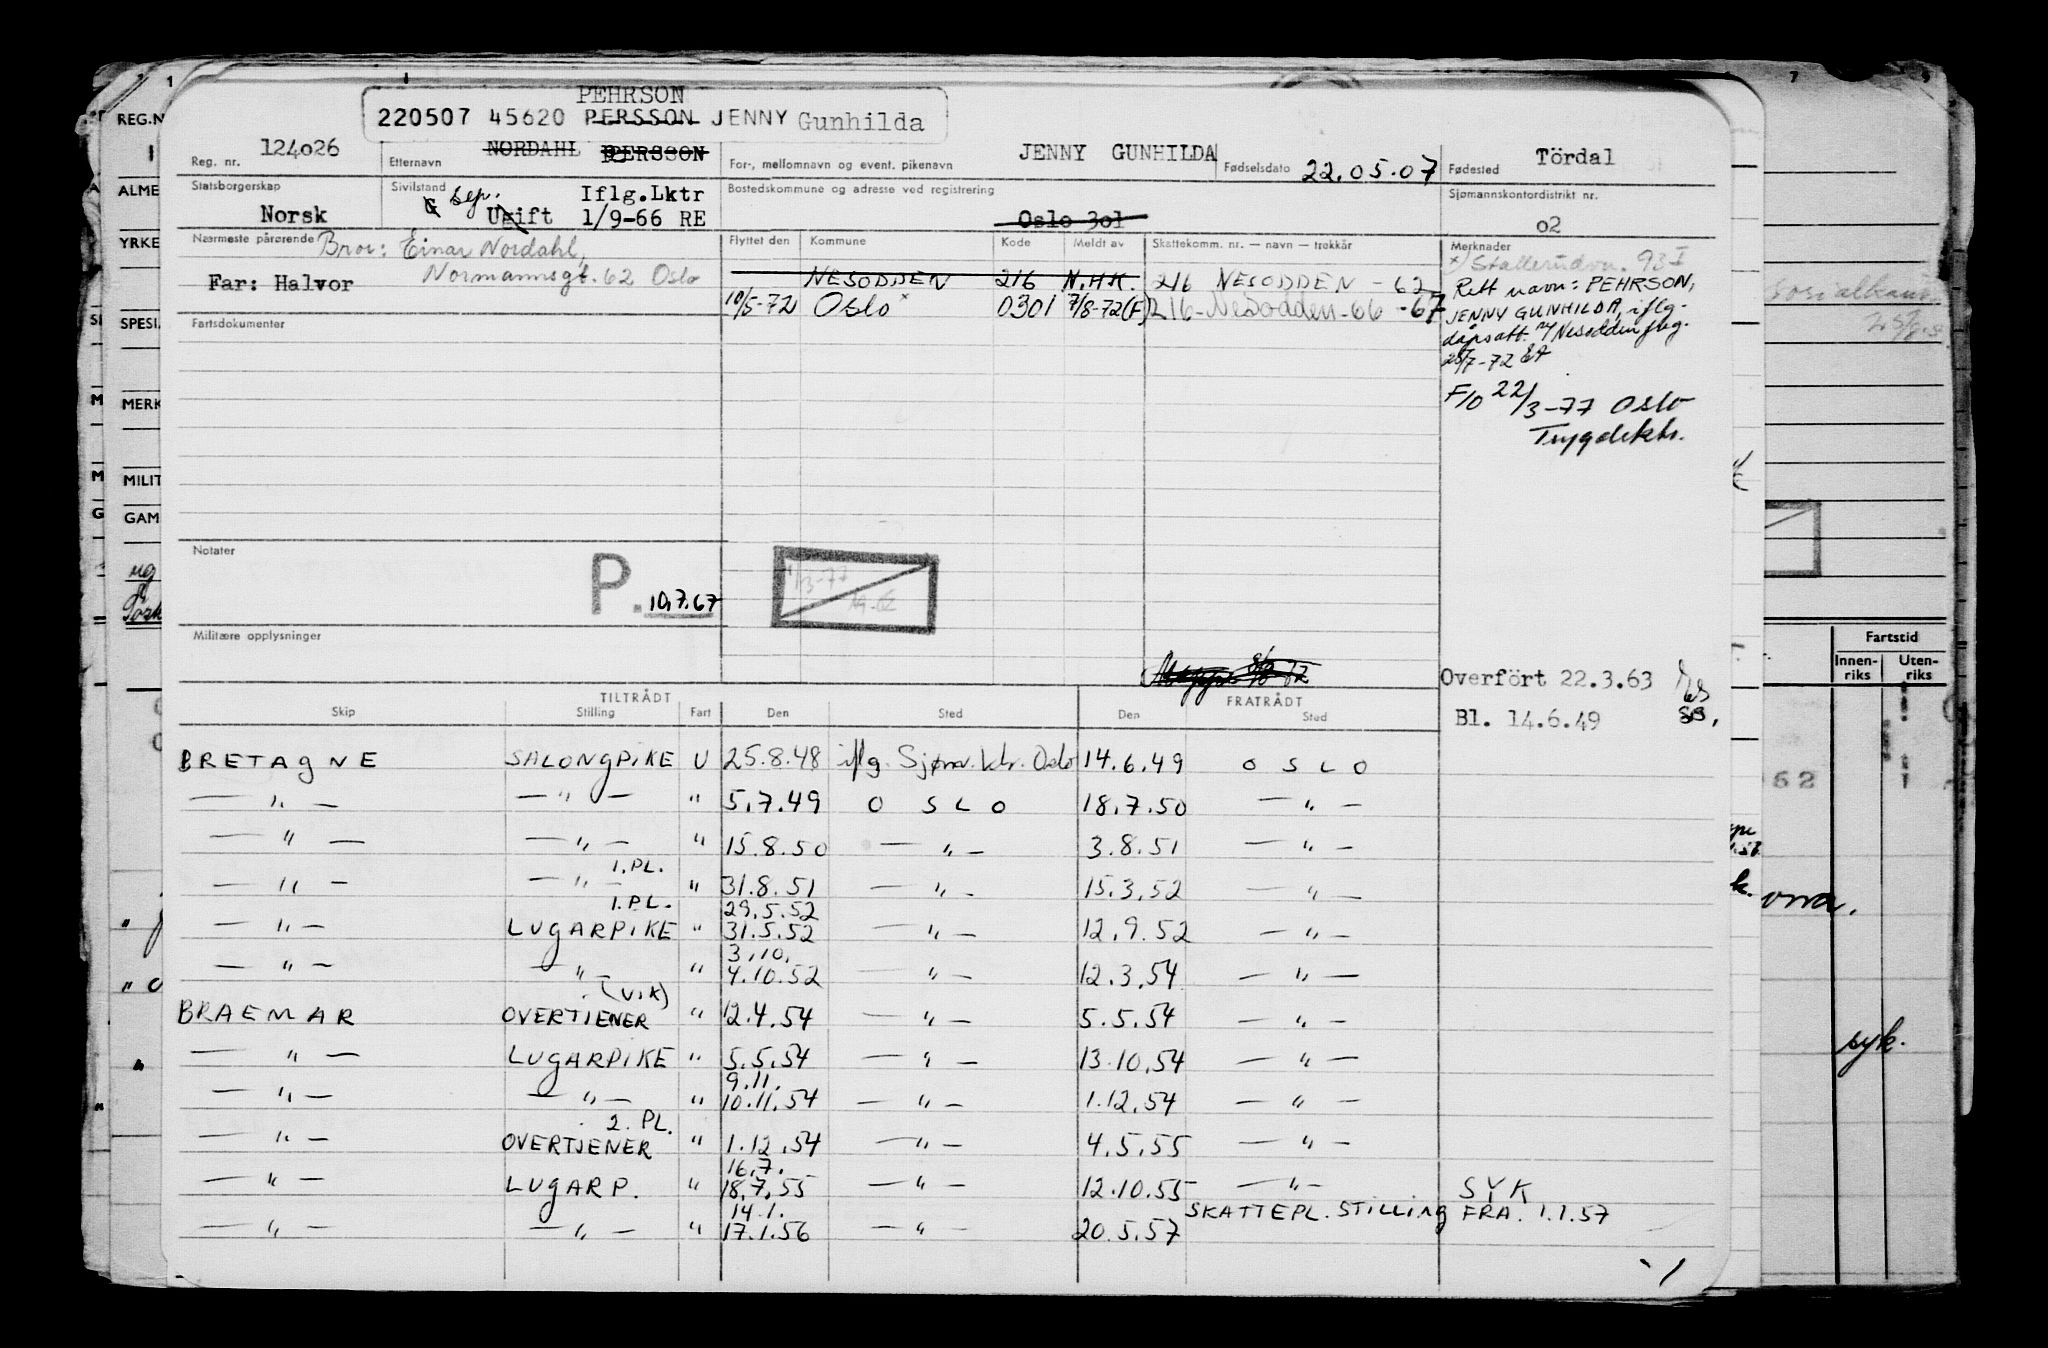 PEHRSON
220507 45620 PERSSON JENNY Gunhilda
Reg. nr. 124026
Etternavn NORDAHL PERSSON
For-, mellomnavn og event. pikenavn JENNY GUNHILDA
Fødselsdato 22.05.07
Fødested Tördal
Statsborgerskap Norsk
Sivilstand G sep. Ugift Iflg.Lktr 1/9-66 RE
Bostedskommune og adresse ved registrering Oslo 301
Sjømannskontordistrikt nr. 02
Nærmeste pårørende Bror: Einar Nordahl,
Normannsgt. 62 Oslo
Far: Halvor
Flyttet den Kommune Kode Meldt av Skattekomm. nr. — navn — trekkår
NESODDEN 216 N.H.K. 216 NESODDEN - 62
10/5-72 Oslo x 0301 7/8-72(F) 216-Nesodden-66 -67
Merknader
x) Stallerudvn. 93 I
Rett navn: PEHRSON,
JENNY GUNHILDA, iflg.
dåpsatt. Nesodden
-72
F/O 22/3-77 Oslo
Trygdektr.
Fartsdokumenter
Notater
P. 10.7.67
3-77
Militære opplysninger
Overfört 22.3.63
Bl. 14.6.49
TILTRÅDT FRATRÅDT
Skip Stilling Fart Den Sted Den Sted
BRETAGNE SALONGPIKE U 25.8.48 iflg. Sjøm.ktr. Oslo 14.6.49 OSLO
— " — — " — " 5.7.49 OSLO 18.7.50 — " —
— " — — " — " 15.8.50 — " — 3.8.51 — " —
1.PL.
— " — — " — " 31.8.51 — " — 15.3.52 — " —
1.PL. 29.5.52
— " — LUGARPIKE " 31.5.52 — " — 12.9.52 — " —
3.10.
— " — — " — " 4.10.52 — " — 12.3.54 — " —
(VIK)
BRAEMAR OVERTJENER " 12.4.54 — " — 5.5.54 — " —
— " — LUGARPIKE " 5.5.54 — " — 13.10.54 — " —
9.11.
— " — — " — " 10.11.54 — " — 1.12.54 — " —
2. PL.
— " — OVERTJENER " 1.12.54 — " — 4.5.55 — " —
16.7.
— " — LUGARP. " 18.7.55 — " — 12.10.55 — " — SYK
14.1. SKATTEPL. STILLING FRA. 1.1.57
— " — — " — " 17.1.56 — " — 20.5.57
REG.N
ALME
YRKE
SPESI
MERK
MILIT
GAM
Fartstid
Innen-
riks
Uten-
riks
syk.